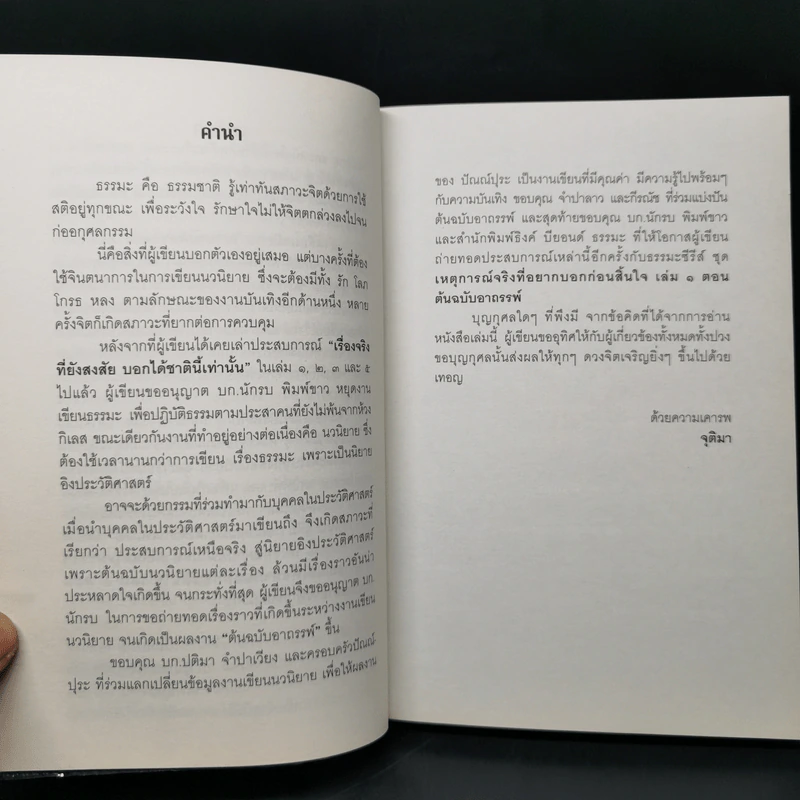 คำนำ
ธรรมะ คือ ธรรมชาติ รู้เท่าทันสภาวะจิตด้วยการใช้
สติอยู่ทุกขณะ เพื่อระวังใจ รักษาใจไม่ให้จิตตกล่วงลงไปจน
ก่ออกุศลกรรม
นี่คือสิ่งที่ผู้เขียนบอกตัวเองอยู่เสมอ แต่บางครั้งที่ต้อง
ใช้จินตนาการในการเขียนนวนิยาย ซึ่งจะต้องมีทั้ง รัก โลภ
โกรธ หลง ตามลักษณะของงานบันเทิงอีกด้านหนึ่ง หลาย
ครั้งจิตก็เกิดสภาวะที่ยากต่อการควบคุม
หลังจากที่ผู้เขียนได้เคยเล่าประสบการณ์ “เรื่องจริง
ที่ยังสงสัย บอกได้ชาตินี้เท่านั้น” ในเล่ม ๑, ๒, ๓ และ ๕
ไปแล้ว ผู้เขียนขออนุญาต บก.นักรบ พิมพ์ขาว หยุดงาน
เขียนธรรมะ เพื่อปฏิบัติธรรมตามประสาคนที่ยังไม่พ้นจากห้วง
กิเลส ขณะเดียวกันงานที่ทำอยู่อย่างต่อเนื่องคือ นวนิยาย ซึ่ง
ต้องใช้เวลานานกว่าการเขียน เรื่องธรรมะ เพราะเป็นนิยาย
อิงประวัติศาสตร์
อาจจะด้วยกรรมที่ร่วมทำมากับบุคคลในประวัติศาสตร์
เมื่อนำบุคคลในประวัติศาสตร์มาเขียนถึง จึงเกิดสภาวะที่
เรียกว่า ประสบการณ์เหนือจริง สู่นิยายอิงประวัติศาสตร์
เพราะต้นฉบับนวนิยายแต่ละเรื่อง ล้วนมีเรื่องราวอันน่า
ประหลาดใจเกิดขึ้น จนกระทั่งที่สุด ผู้เขียนจึงขออนุญาต บก.
นักรบ ในการขอถ่ายทอดเรื่องราวที่เกิดขึ้นระหว่างงานเขียน
นวนิยาย จนเกิดเป็นผลงาน “ต้นฉบับอาถรรพ์” ขึ้น
ขอบคุณ บก.ปติมา จำปาเวียง และครอบครัวปัณณ์-
ปุระ ที่ร่วมแลกเปลี่ยนข้อมูลงานเขียนนวนิยาย เพื่อให้ผลงาน
ของ ปัณณ์ปุระ เป็นงานเขียนที่มีคุณค่า มีความรู้ไปพร้อมๆ
กับความบันเทิง ขอบคุณ จำปาลาว และภีรณัช ที่ร่วมแบ่งปัน
ต้นฉบับอาถรรพ์ และสุดท้ายขอบคุณ บก.นักรบ พิมพ์ขาว
และสำนักพิมพ์ธิงค์ บียอนด์ ธรรมะ ที่ให้โอกาสผู้เขียน
ถ่ายทอดประสบการณ์เหล่านี้อีกครั้งกับธรรมะซีรีส์ ชุด
เหตุการณ์จริงที่อยากบอกก่อนสิ้นใจ เล่ม ๑ ตอน
ต้นฉบับอาถรรพ์
บุญกุศลใดๆ ที่พึงมี จากข้อคิดที่ได้จากการอ่าน
หนังสือเล่มนี้ ผู้เขียนขออุทิศให้กับผู้เกี่ยวข้องทั้งหมดทั้งปวง
ขอบุญกุศลนั้นส่งผลให้ทุกๆ ดวงจิตเจริญยิ่งๆ ขึ้นไปด้วย
เทอญ
ด้วยความเคารพ
จุติมา